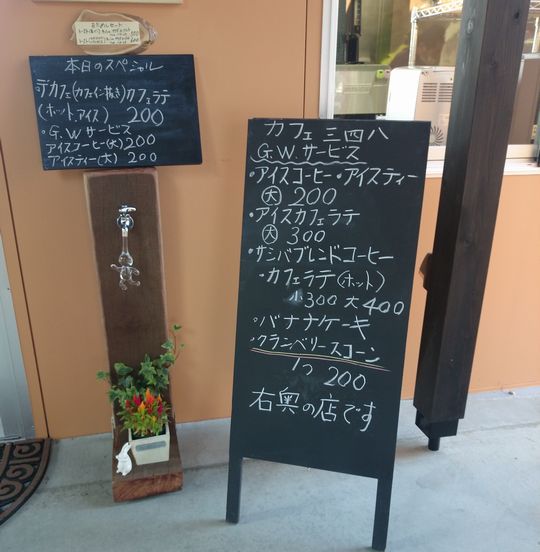 本日のスペシャル
デカフェ(カフェイン抜き)カフェラテ
(ホット、アイス) 200
・G.W.サービス
アイスコーヒー(大)200
アイスティー(大) 200
カフェ 三四八
G.W.サービス
・アイスコーヒー・アイスティー
大 200
・アイスカフェラテ
大 300
・サシバブレンドコーヒー
・カフェラテ(ホット)
小300 大400
・バナナケーキ
・クランベリースコーン
1つ 200
右奥の店です